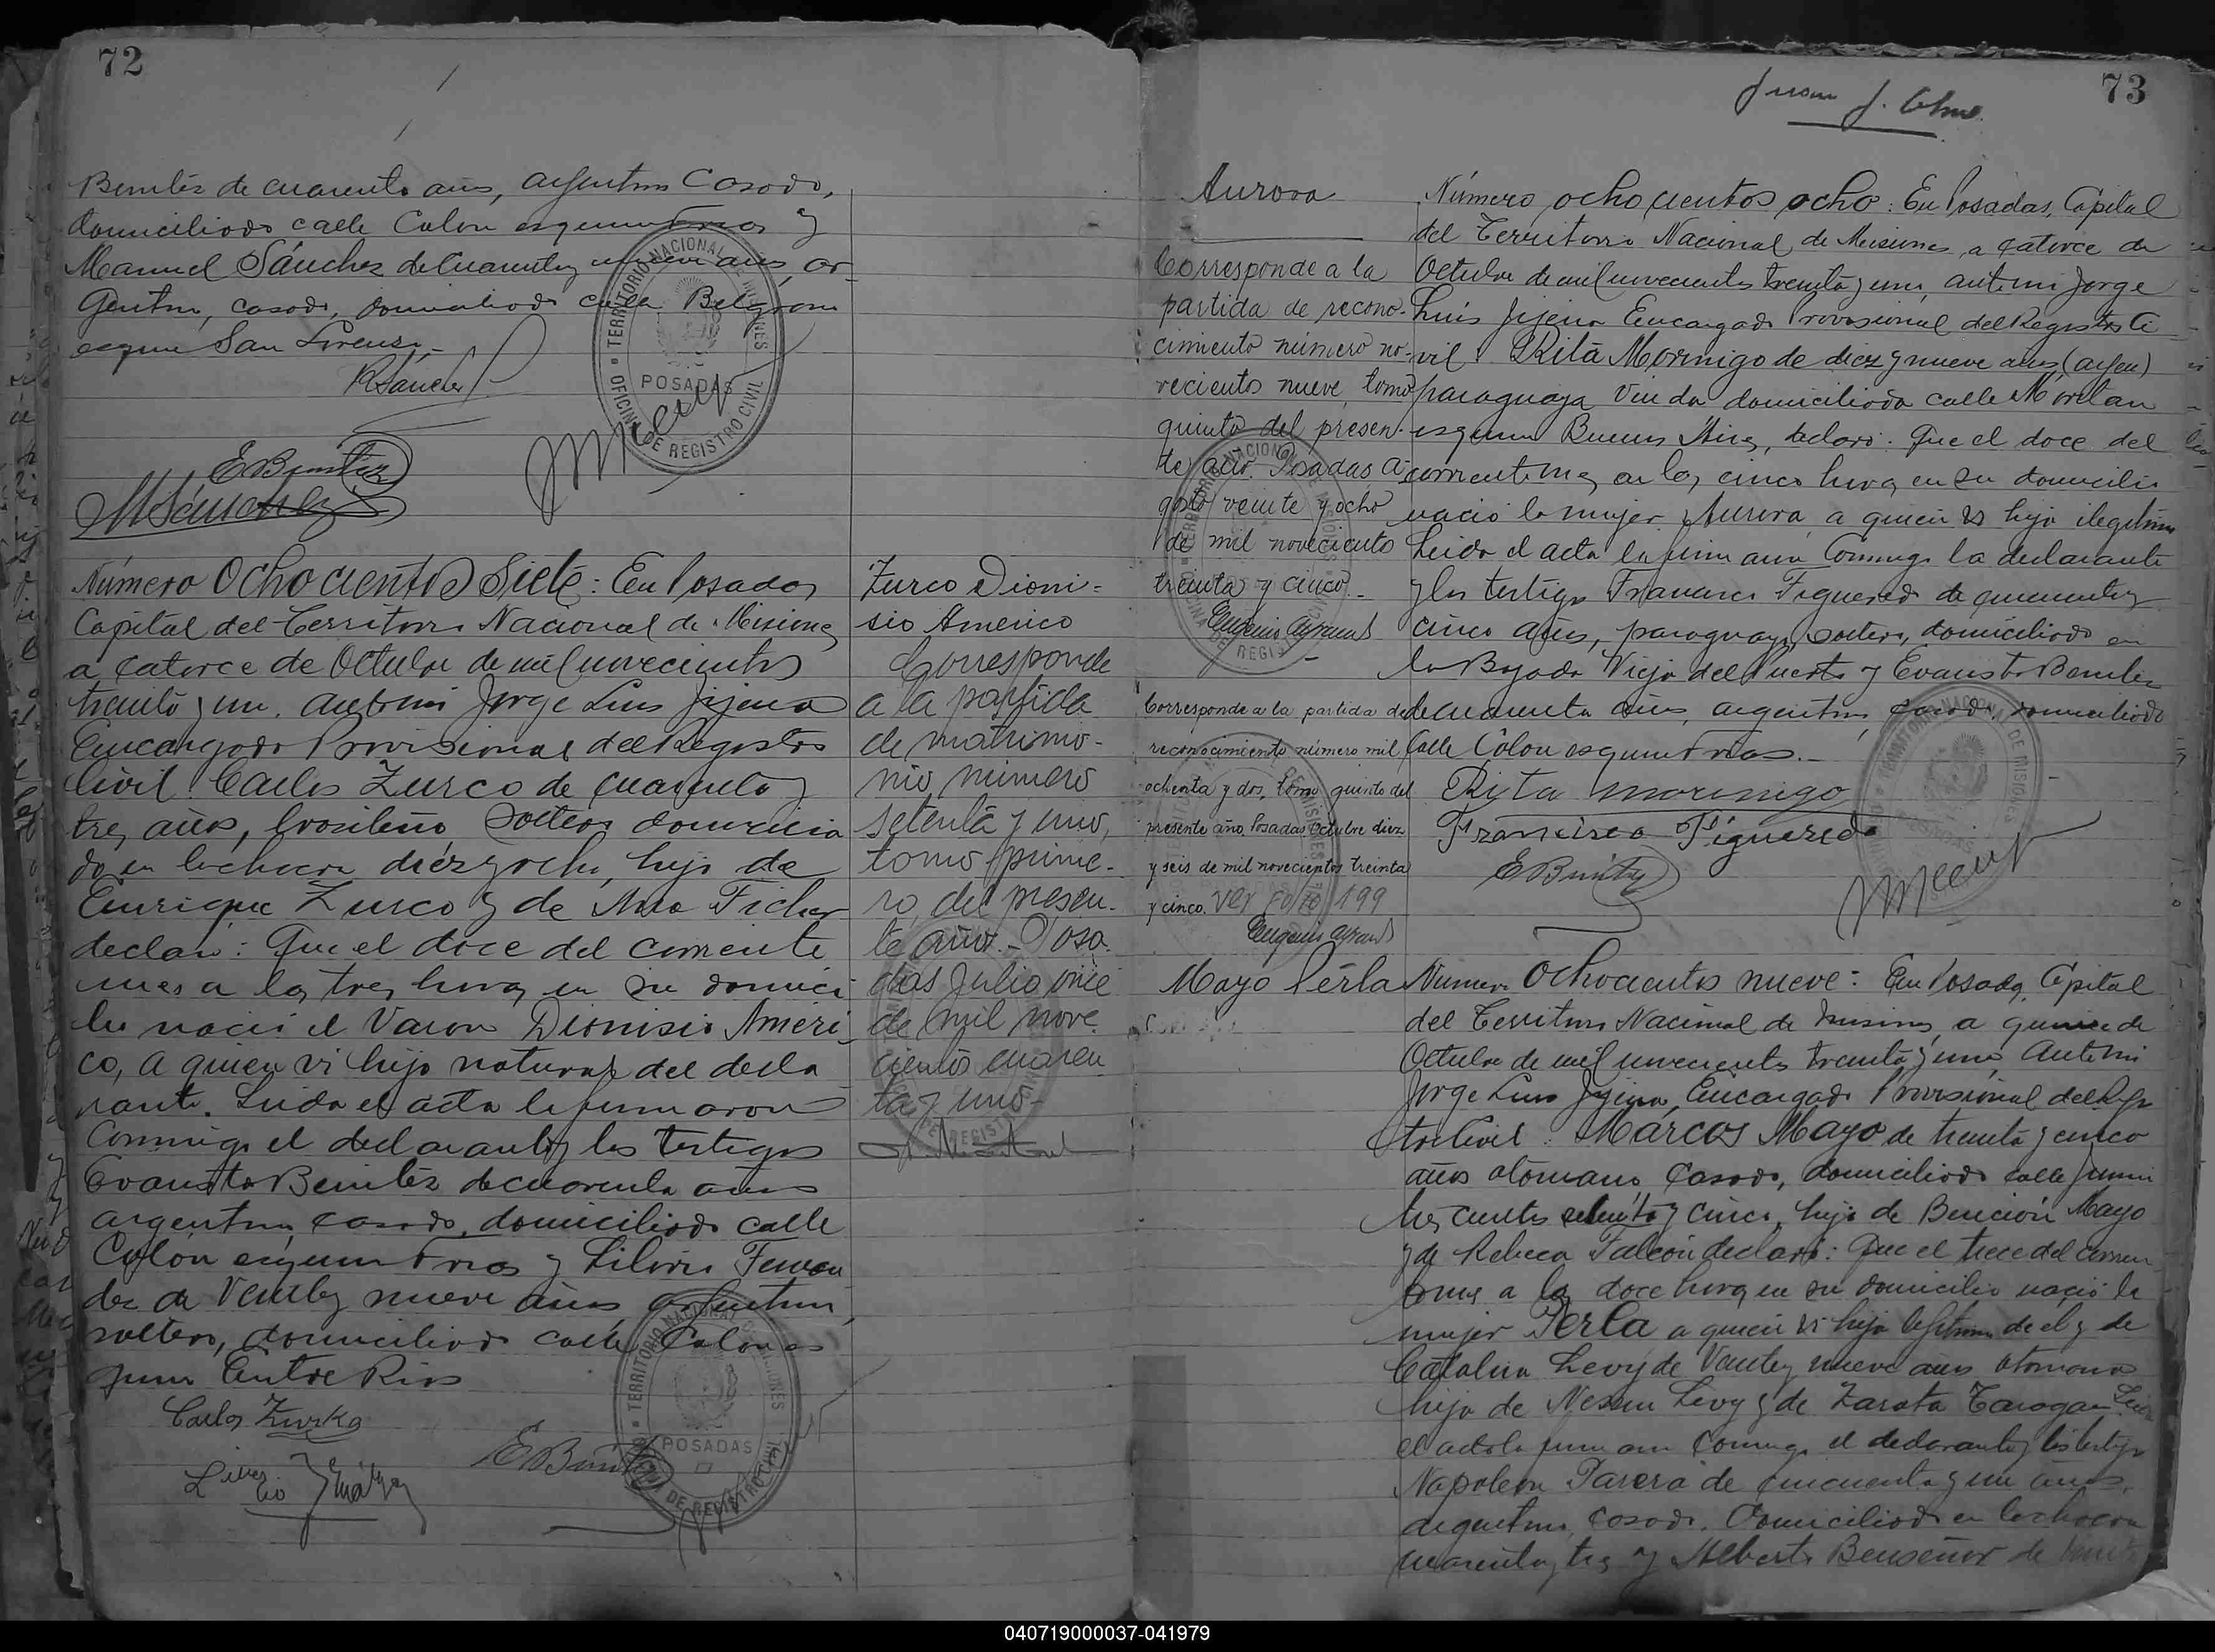 72
Benitez de cuarenta años, argentino Casado,
domiciliado calle Colon esquina Entre Rios y
Manuel Sánchez de Cuarenta y nueve años, ar-
gentino, casado, domiciliado calle Belgrano
esquina San Lorenzo.-
RSánchez
EBenitez
MSánchez
TERRITORIO NACIONAL DE MISIONES
POSADAS
OFICINA DE REGISTRO CIVIL
Número Ochocientos Siete: En Posadas
Capital del Territorio Nacional de Misiones
a catorce de Octubre de mil novecientos
treinta y uno, ante mi Jorge Luis Jijena
Encargado Provisional del Registro
Civil: Carlos Zurco de cuarenta y
tres años, brasileño, Soltero, domicilia
do en la chacra diez y ocho, hijo de
Enrique Zurco y de Ana Ficher
declaró: Que el doce del corriente
mes a las tres horas en su domici
lio nació el Varon Dionisio Améri
co, a quien vi hijo natural del decla
rante. Leida el acta la firmaron
Conmigo el declarante y los testigos
Evaristo Benitez de cuarenta años
argentino, casado, domiciliado calle
Colón esquina Entre Rios y Liborio Fernan
dez de Veinte y nueve años, argentino,
soltero, domiciliado calle Colon es
quina Entre Rios
Carlos Zurko
EBenitez
TERRITORIO NACIONAL DE MISIONES
POSADAS
OFICINA DE REGISTRO CIVIL
Zurco Dioni=
sio Americo
Corresponde
a la partida
de matrimo-
nio, número
setenta y uno,
tomo prime-
ro, del presen-
te año.- Posa
das Julio once
de mil nove
cientos cuaren
ta y uno-
73
Juan J.
Aurora
Corresponde a la
partida de recono-
cimiento número no-
vecientos nueve, tomo
quinto del presen-
te año. Posadas A-
gosto veinte y ocho
de mil novecientos
treinta y cinco.-
Corresponde a la partida de
reconocimiento número mil
ochenta y dos, tomo quinto del
presente año, Posadas Octubre diez
y seis de mil novecientos treinta
y cinco. Ver folio 199
Número ochocientos ocho: En Posadas, Capital
del Territorio Nacional de Misiones, a catorce de
Octubre de mil novecientos treinta y uno, ante mi Jorge
Luis Jijena Encargado Provisional del Registro Ci
vil: Rita Morinigo de diez y nueve años, (argen)
paraguaya Viuda domiciliada calle Moritan
esquina Buenos Aires, declaró: Que el doce del
corriente mes a las cinco horas en su domicilio
nació la mujer Aurora, a quien vi hija ilegítima
Leida el acta la firmaron Conmigo la declarante
y los testigos Francisco Figueredo de cincuenta y
cinco años, paraguayo, soltero, domiciliado en
la Bajada Vieja del Puerto y Evaristo Benitez
de cuarenta años, argentino, casado, domiciliado
Calle Colon esquina Entre Rios.-
Rita morinigo
Francisco Figueredo
EBenitez
Mayo Perla
Número Ochocientos nueve: En Posadas, Capital
del Territorio Nacional de Misiones, a quince de
Octubre de mil novecientos treinta y uno, Ante mi
Jorge Luis Jijena, Encargado Provisional del Regis
tro Civil: Marcos Mayo de treinta y cinco
años otomano, casado, domiciliado calle Junin
trescientos setenta y cinco, hijo de Bención Mayo
y de Rebeca Falcón declaró: Que el trece del corrien
te mes a las doce horas en su domicilio nació la
mujer Perla a quien vi hija legítima de el y de
Catalina Levy de Veinte y nueve años otomana
hija de Nessim Levy y de Zarota Taragan. Leida
el acta la firmaron Conmigo el declarante y los testigos
Napoleon Parera de cincuenta y un años,
argentino, casado, domiciliado en la chacra
cuarenta y tres y Alberto Benseñor de
040719000037-041979